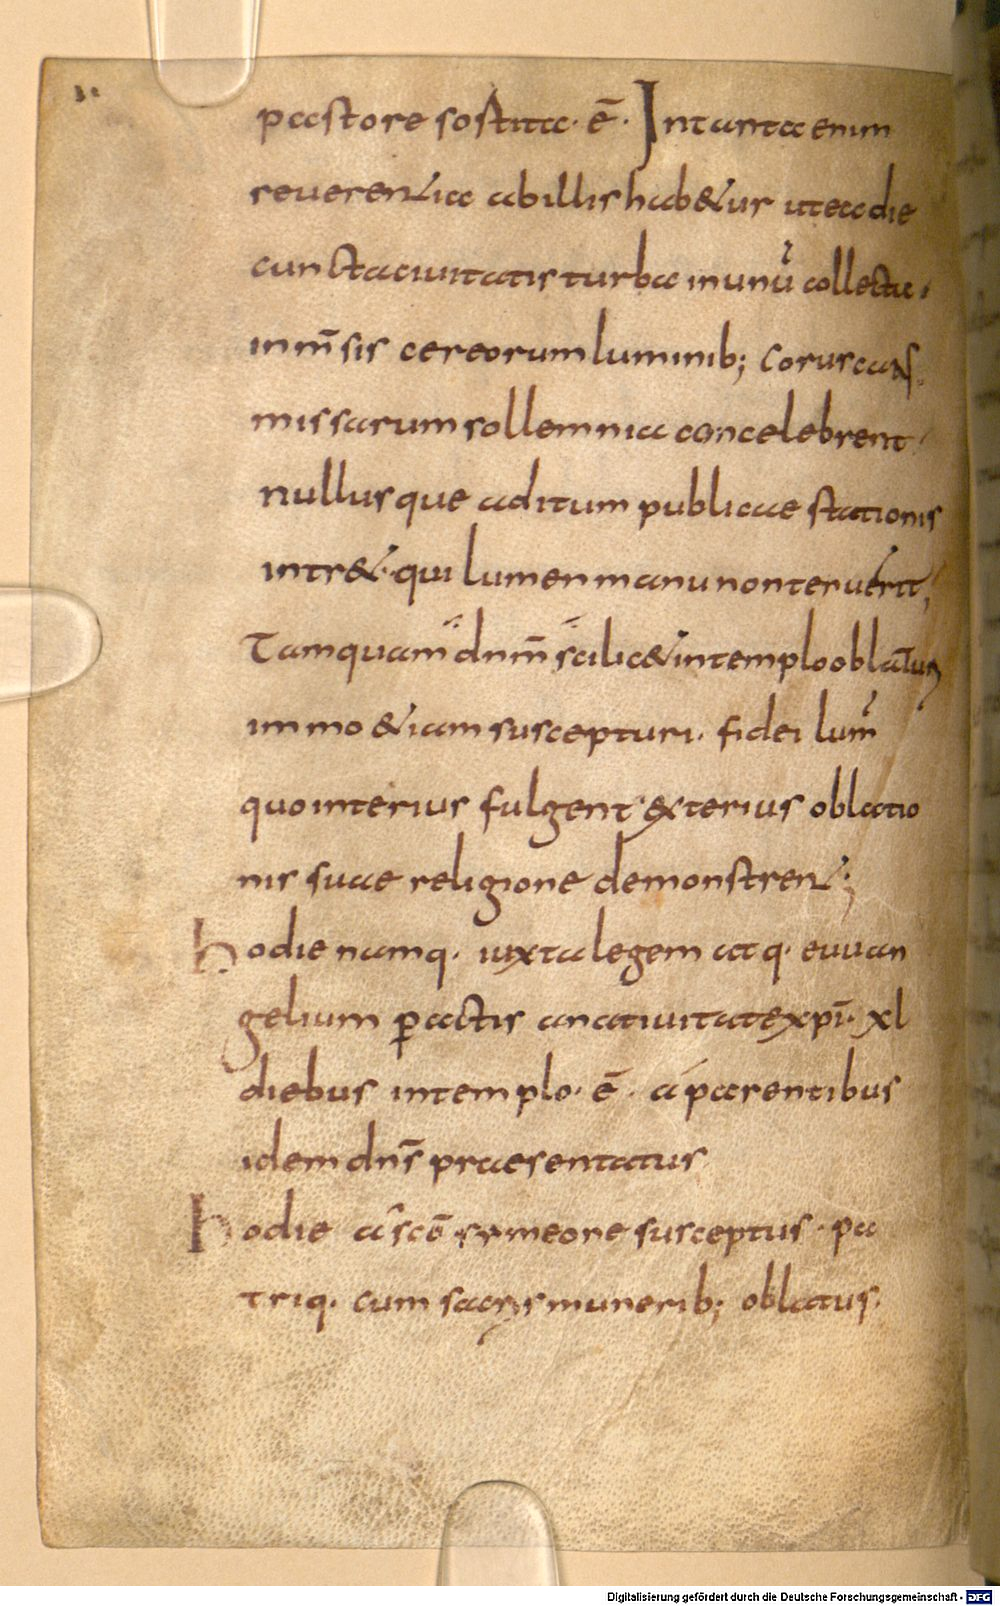 pastore sostita· ē· In tanta enim
reverentia ab illis habetur ut ea die
cuncta civitatis turba in unū collecta·
inm̄sis cereorum luminib; coruscans
missarum sollemnia concelebrent·
nullusque aditum publicae stationis
intr&· qui lumen manu non tenuerit;
Tamquam dnm̄ scilic& in templo oblaturi
immo &iam suscepturi· fidei lum̄
quo interius fulgent exterius oblatio
nis suae religione demonstrent;
hodie namq· iuxta legem atq· euuan
gelium ꝑactis a nativitate xpī· xl
diebus in templo· ē· a parentibus
idem dns̄ praesentatus
hodie a scō symeone susceptus· pa
triq· cum sacris munerib; oblatus·
Digitalisierung gefördert durch die Deutsche Forschungsgemeinschaft - DFG